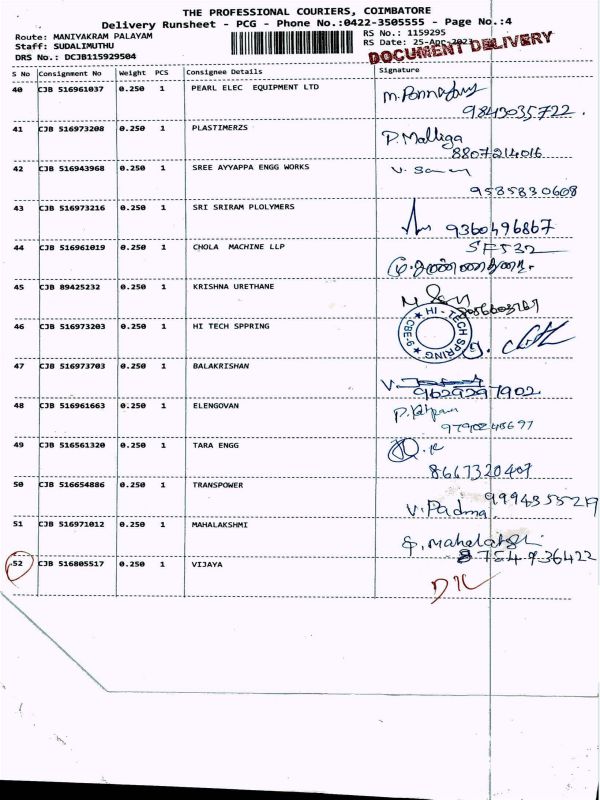 THE PROFESSIONAL COURIERS, COIMBATORE
Delivery Runsheet - PCG - Phone No.:0422-3505555 - Page No.:4
Route: MANIYAKRAM PALAYAM RS No.: 1159295
Staff: SUDALIMUTHU RS Date: 25-Apr-2023
DRS No.: DCJB115929504 DOCUMENT DELIVERY
S No Consignment No Weight PCS Consignee Details Signature
40 CJB 516961037 0.250 1 PEARL ELEC EQUIPMENT LTD
9843035722.
41 CJB 516973208 0.250 1 PLASTIMERZS P. Malliga
8807214016
42 CJB 516943968 0.250 1 SREE AYYAPPA ENGG WORKS
9585830608
43 CJB 516973216 0.250 1 SRI SRIRAM PLOLYMERS
9360496867
44 CJB 516961019 0.250 1 CHOLA MACHINE LLP SF532
45 CJB 89425232 0.250 1 KRISHNA URETHANE
46 CJB 516973203 0.250 1 HI TECH SPPRING HI - TECH SPRING CBE-6
47 CJB 516973703 0.250 1 BALAKRISHAN V.
9629297902
48 CJB 516961663 0.250 1 ELENGOVAN
49 CJB 516561320 0.250 1 TARA ENGG
8667320407
50 CJB 516654886 0.250 1 TRANSPOWER
V. Padma
51 CJB 516971012 0.250 1 MAHALAKSHMI
8754936422
52 CJB 516805517 0.250 1 VIJAYA